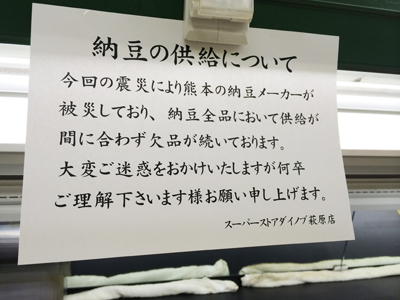 納豆の供給について
今回の震災により熊本の納豆メーカーが
被災しており、納豆全品において供給が
間に合わず欠品が続いております。
大変ご迷惑をおかけいたしますが何卒
ご理解下さいます様お願い申し上げます。
スーパーストアダイノブ萩原店